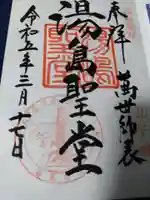 奉拝
萬世師表
湯島聖堂
令和五年三月十七日